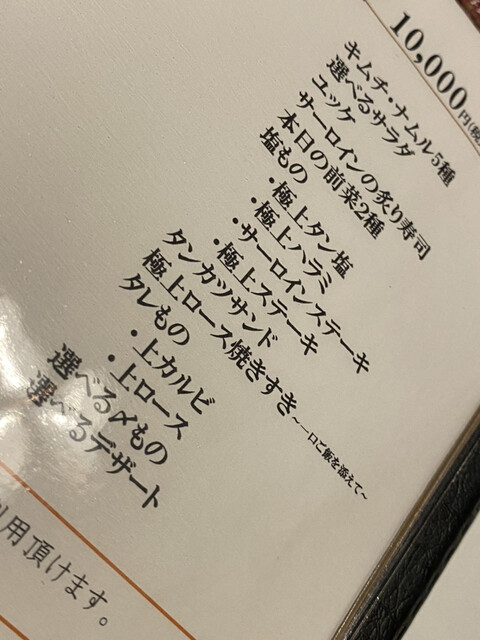 10,000円(税
キムチ・ナムル5種
選べるサラダ
ユッケ
サーロインの炙り寿司
本日の前菜2種
塩もの
・極上タン塩
・極上ハラミ
・サーロインステーキ
・極上ステーキ
タンカツサンド
極上ロース焼きすき～一口ご飯を添えて～
タレもの
・上カルビ
・上ロース
選べる〆もの
選べるデザート
用頂けます。